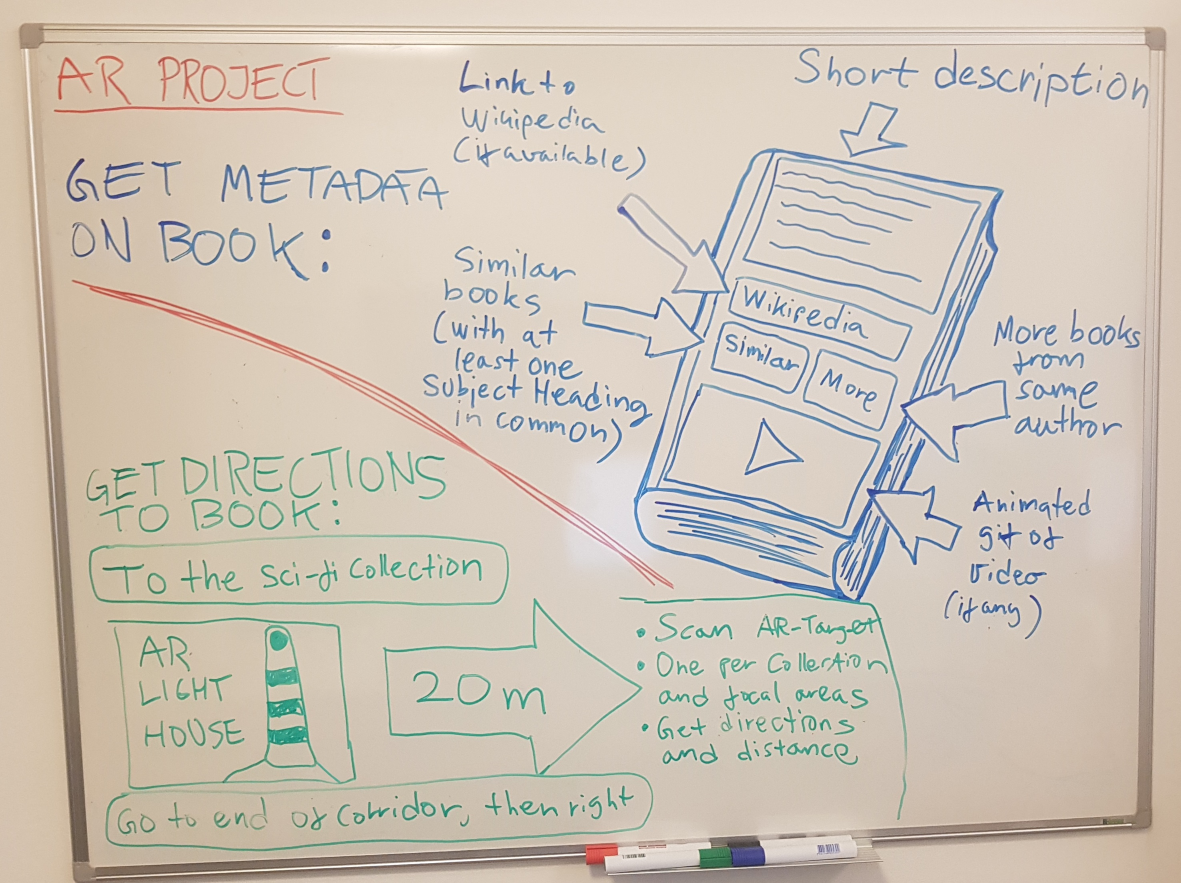 AR PROJECT
GET METADATA
ON BOOK:
Link to
Wikipedia
(if available)
Short description
Similar
books
(with at
least one
Subject Heading
in common)
Wikipedia
Similar
More
More books
from
same
author
Animated
gif of
video
(if any)
GET DIRECTIONS
TO BOOK:
To the sci-fi collection
AR
LIGHT
HOUSE
20m
Go to end of corridor, then right
• Scan AR-Target
• One per Collection
and focal areas
• Get directions
and distance